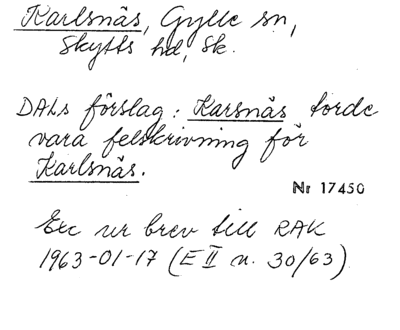 Karlsnäs, Gylle sn,
Skytts hd, Sk.
DALs förslag: Karsnäs torde
vara felskrivning för
Karlsnäs.
Nr 17450
Exc ur brev till RAK
1963-01-17 (E II n. 30/63)